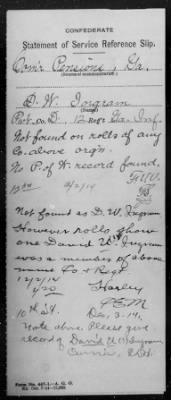 CONFEDERATE
Statement of Service Reference Slip.
Com'r Pensions, Ga.
D. W. Ingram
Pvt. Co. D, 12 Regt Ga. Inf.
Not found on rolls of any
Co. above org'n.
No P. of W. record found.
12/2/14
Not found as D. W. Ingram
However rolls show
one David U. Ingram
was a member of above
name Co & Regt.
12/2/14
Harley
10th St. Dec. 3-14.
Note above. Please give
record of David U. Ingram
Form No. 447-1—A. G. O.